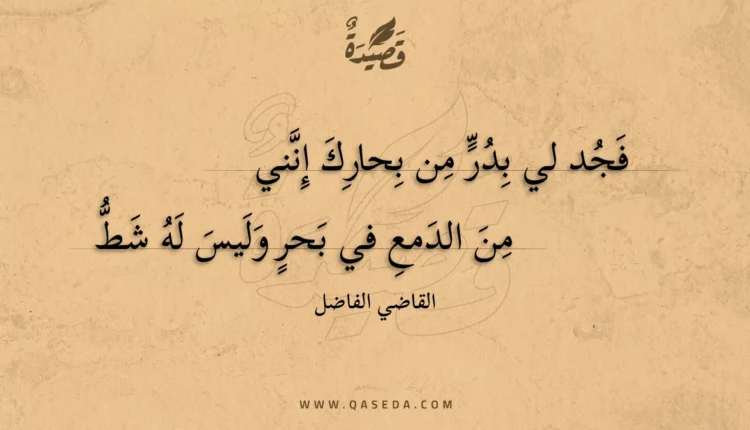 قَصِيدَةٌ
فَجُد لي بِدُرٍّ مِن بِحارِكَ إِنَّني
مِنَ الدَمعِ في بَحرٍ وَلَيسَ لَهُ شَطُّ
القاضي الفاضل
WWW.QASEDA.COM